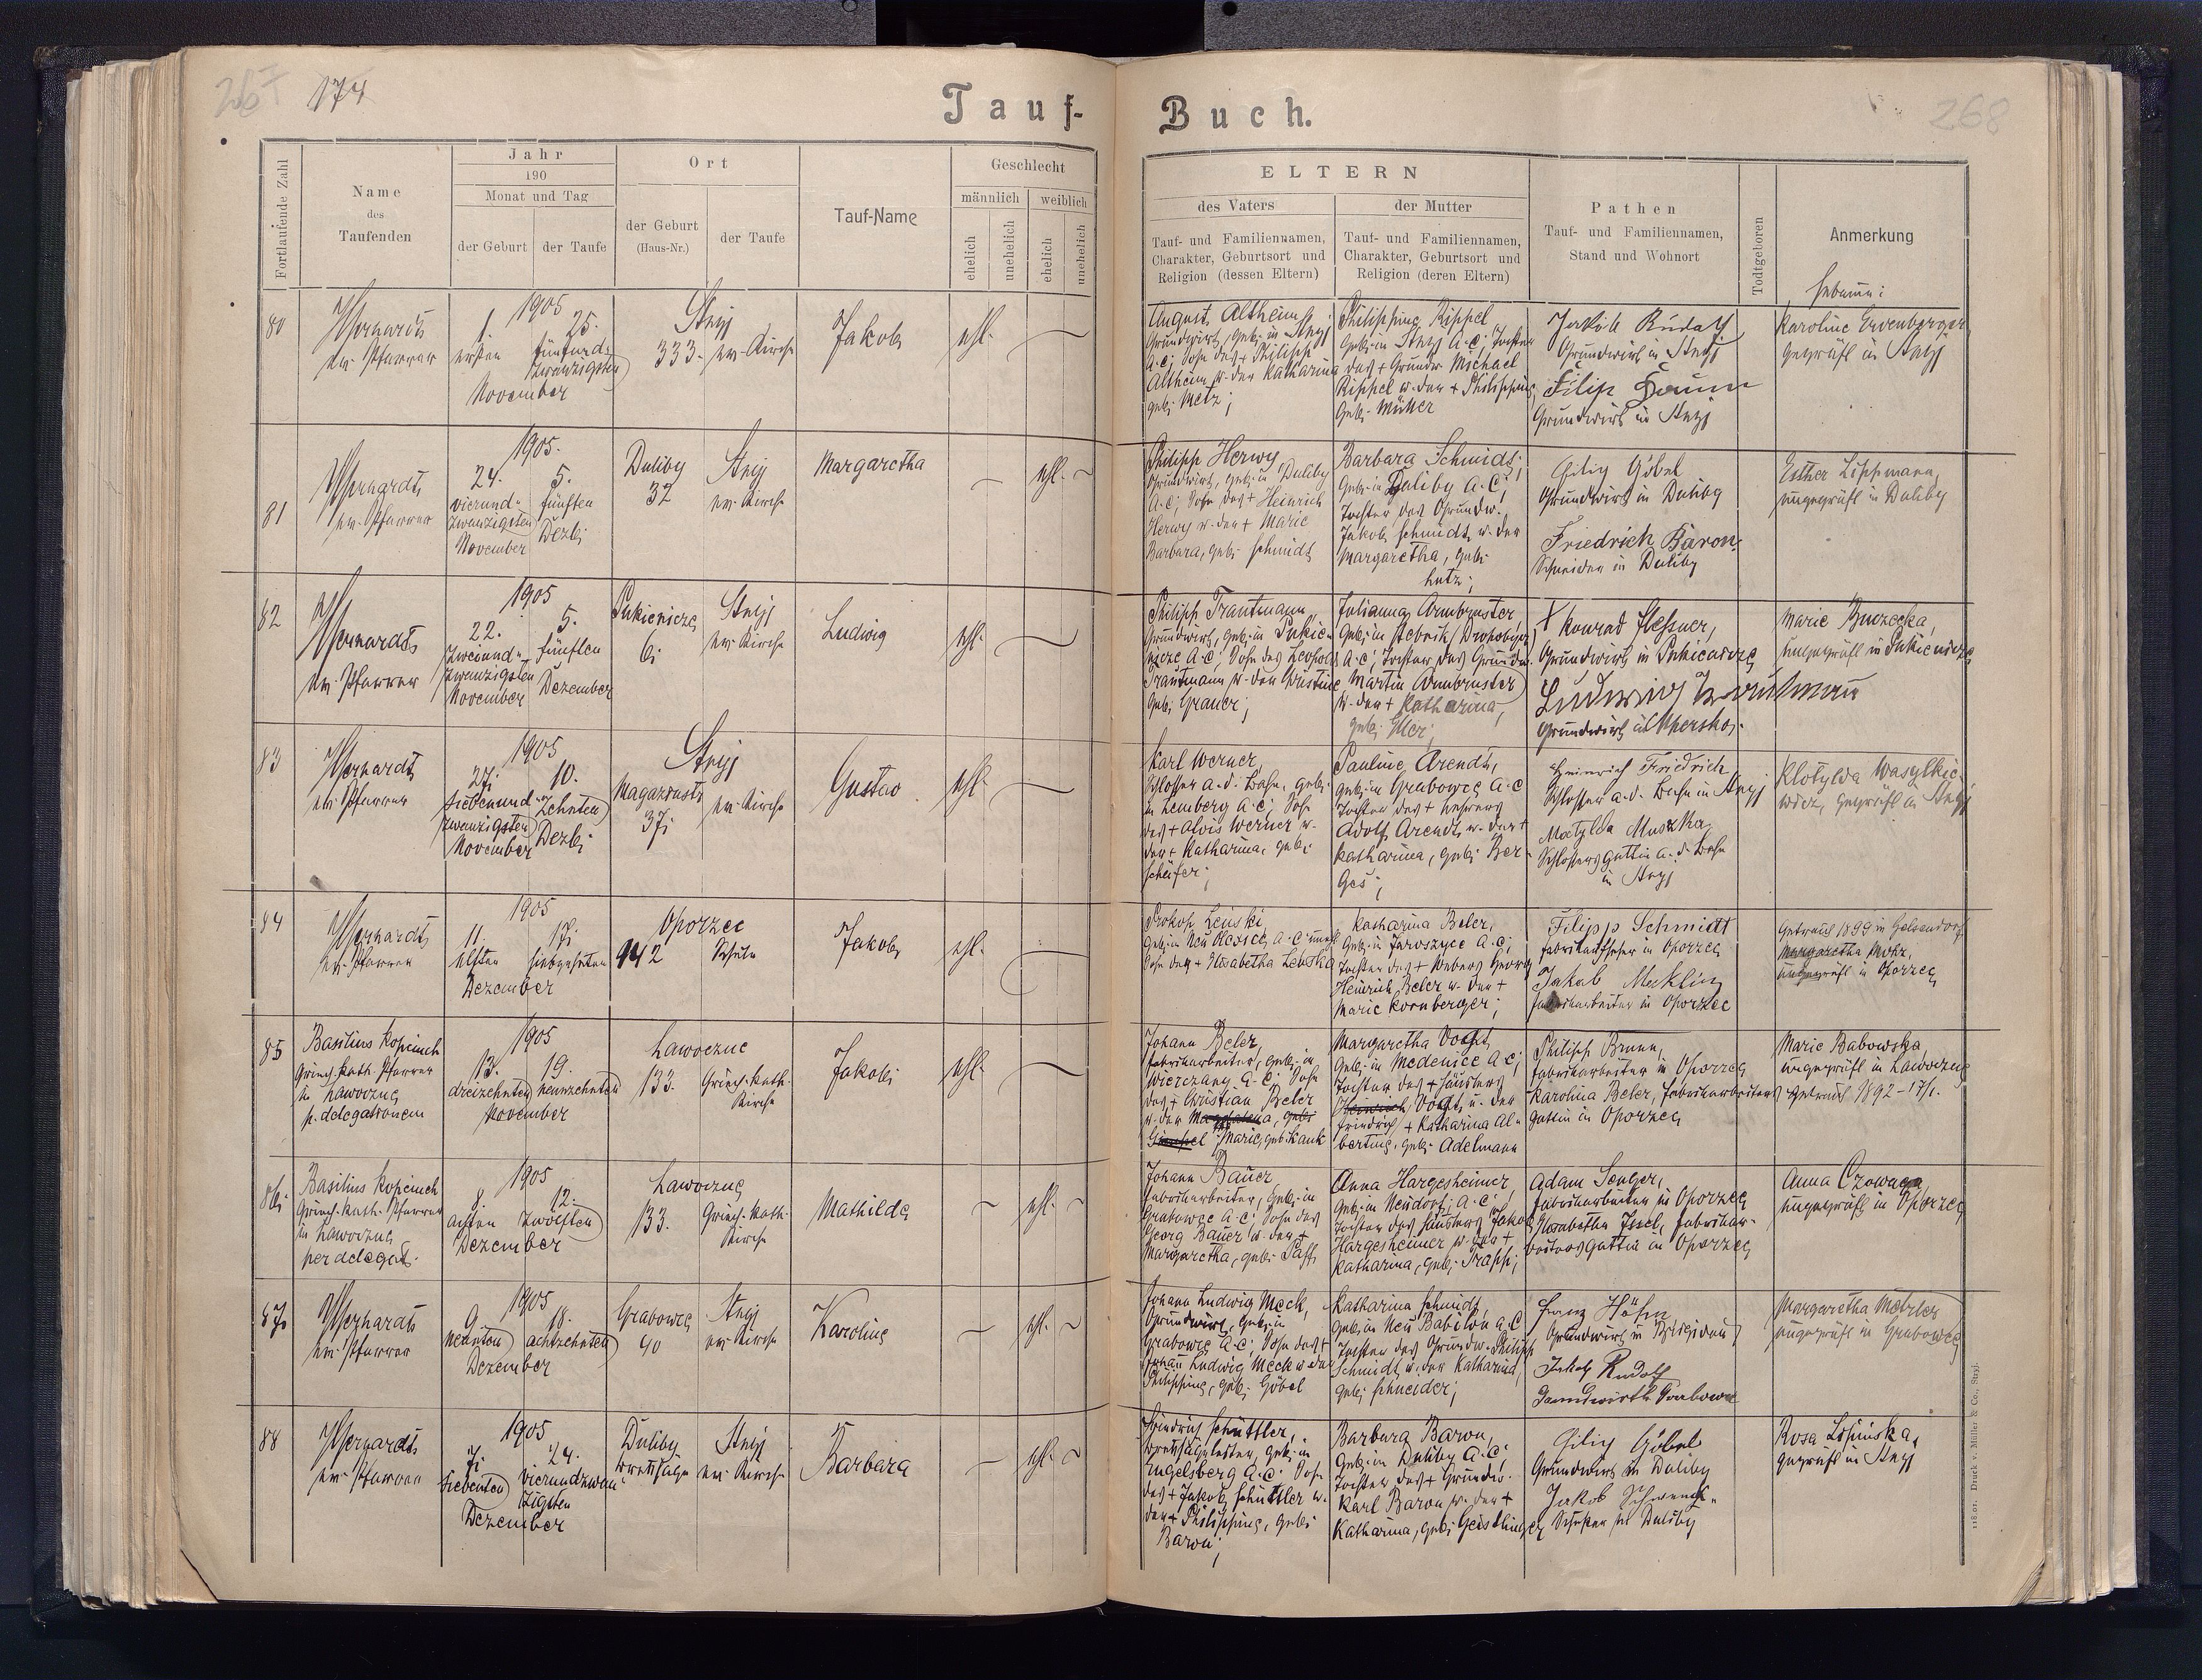 174
268
Tauf-
Buch.
Fortlaufende Zahl
Name
des
Taufenden
Jahr
190
Monat und Tag
der Geburt
der Taufe
Ort
der Geburt
(Haus-Nr.)
der Taufe
Tauf-Name
Geschlecht
männlich
weiblich
ehelich
unehelich
ehelich
unehelich
ELTERN
des Vaters
Tauf- und Familiennamen,
Charakter, Geburtsort und
Religion (dessen Eltern)
der Mutter
Tauf- und Familiennamen,
Charakter, Geburtsort und
Religion (deren Eltern)
Pathen
Tauf- und Familiennamen,
Stand und Wohnort
Todtgeboren
Anmerkung
Hebamme:
80
ev. Pfarrer
1905
1. 25.
ersten fünfund-
zwanzigsten
November
Stryj
333. ev. Kirche
Jakob
ehl.
August Altheim,
Grundwirt, geb. in Stryj
A.C.; Sohn des + Philipp
Altheim u. der Katharina
geb. Metz;
Philippine Rippel
geb. in Stryj A.C.; Tochter
des + Grundw. Michael
Rippel u. der + Philippine,
geb. Müller
Jakob Rudolf
Grundwirt in Stryj
Filip
Grundwirt in Stryj
Karoline
geprüft in Stryj
81
ev. Pfarrer
1905.
24. 5.
vierund- fünften
zwanzigsten Dezb.
November
Duliby Stryj
32 ev. Kirche
Margaretha
ehl.
Philipp Herwy
Grundwirt, geb. in Duliby
A.C.; Sohn des + Heinrich
Herwy u. der + Marie
Barbara, geb. Schmidt
Barbara Schmidt,
geb. in Duliby A.C.;
Tochter des Grundw.
Jakob Schmidt u. der
Margaretha, geb.
Lutz;
Filip Göbel
Grundwirt in Duliby
Friedrich Baron,
Schneider in Duliby
Esther Lippmann,
ungeprüft in Duliby
82
ev. Pfarrer
1905
22. 5.
zweiund- fünften
zwanzigsten Dezember
November
Stryj
6. ev. Kirche
Ludwig
ehl.
Philipp Trautmann,
Grundwirt, geb. in
A.C.; Sohn des Leopold
Trautmann u. der Christine
geb. Grauer;
Julianna Armbruster,
geb. in Stebnik / Drohobycz
A.C.; Tochter des Grundw.
Martin Armbruster
u. der + Katharina,
geb.
+ Konrad
Grundwirt in
Ludwig Trautmann
Grundwirt in
Marie Buczecka,
ungeprüft in
83
ev. Pfarrer
1905
27. 10.
siebenund- zehnten
zwanzigsten Dezb.
November
Stryj
37. ev. Kirche
Gustav
ehl.
Karl Werner,
Schlosser a. d. Bahn, geb.
in Lemberg A.C.; Sohn
des + Alois Werner u.
der + Katharina, geb.
Schäfer;
Pauline Arendt,
geb. in Grabowce A.C.
Tochter des +
Adolf Arendt u. der +
Katharina, geb. Ber-
ges;
Heinrich Friedrich
Schlosser a. d. Bahn in Stryj
Matylda Muszka,
Schlossers Gattin a. d. Bahn
in Stryj
Klotylda Wasylkie-
wicz, geprüft in Stryj
84
ev. Pfarrer
1905
11. 17.
elften siebzehnten
Dezember
Oporzec
942 Schule
Jakob
ehl.
Prokop
geb. in Neu A.C.
Sohn der + Elisabetha
Katharina Beler,
geb. in Jaroszyce A.C.;
Tochter des + Webers Georg
Heinrich Beler u. der +
Marie Kornberger;
Filipp Schmidt
in Oporzec
Jakob Mecklin
Fabrikarbeiter in Oporzec
Getraut 1899 in Gelsendorf
Margaretha
ungeprüft in Oporzec
85
Basilius Kopciuch
Griech. kath. Pfarrer
in Lawoczne
p. delegationem
1905
13. 19.
dreizehnten neunzehnten
November
Lawoczne
133. Griech. kath.
Kirche
Jakob
ehl.
Johann Beler,
Fabrikarbeiter, geb. in
Wierczany A.C. Sohn
des + Christian Beler
u. der
Marie, geb. Kauk
Margaretha Vogt,
geb. in Medenice A.C.;
Tochter des + Häuslers
Heinrich Vogt u. der
Friedrich + Katharina Al-
bertine, geb. Adelmann
Philipp Brunn,
Fabrikarbeiter in Oporzec
Karolina Beler, Fabrikarbeiters
Gattin in Oporzec
Marie Babowska
ungeprüft in Lawoczne
Getraut 1892 - 17/1.
86.
Basilius Kopciuch
Griech. kath. Pfarrer
in Lawoczne
per delegat.
1905
8. 12.
achten zwölften
Dezember
Lawoczne
133. Griech. kath.
Kirche
Mathilde
ehl.
Johann Bauer
Fabrikarbeiter, geb. in
Grabowce A.C.; Sohn des
Georg Bauer u. der +
Margaretha, geb. Paff
Anna Hargesheimer,
geb. in Neudorf, A.C.;
Tochter des Häuslers Jakob
Hargesheimer u. der +
Katharina, geb. Trapp;
Adam Senger,
Fabrikarbeiter in Oporzec
Elisabetha Issel, Fabrikar-
beitersgattin in Oporzec
Anna
ungeprüft in Oporzec
87.
ev. Pfarrer
1905
9. 18.
neunten achtzehnten
Dezember
Grabowce Stryj
40 ev. Kirche
Karoline
ehl.
Johann Ludwig Meck,
Grundwirt, geb. in
Grabowce A.C.; Sohn des +
Johann Ludwig Meck u. der
Philippine, geb. Göbel
Katharina Schmidt,
geb. in Neu Babilon A.C.
Tochter des Grundw. Philipp
Schmidt u. der Katharina,
geb. Schneider;
Franz Höhn
Grundwirt in Brigidau
Jakob Rudolf
Margaretha Metzler
ungeprüft in Grabowce
88
ev. Pfarrer
1905
7. 24.
siebenten vierundzwan-
zigsten
Dezember
Duliby Stryj
Brettsäge ev. Kirche
Barbara
ehl.
Heinrich Schüttler,
Brettsägeleiter, geb. in
Engelsberg A.C. Sohn
des + Jakob Schüttler u.
der + Philippine, geb.
Baron;
Barbara Baron,
geb. in Duliby A.C.;
Tochter des + Grundw.
Karl Baron u. der +
Katharina, geb. Geistlinger
Filip Göbel
Grundwirt in Duliby
Jakob
in Duliby
Rosa Lipinska,
geprüft in Stryj
118.01. Druck v. Müller & Co., Stryj.